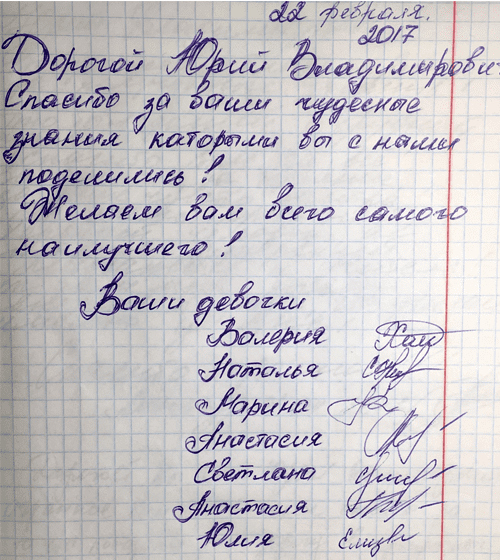 22 февраля.
2017
Дорогой Юрий Владимирови
Спасибо за ваши чудесные
знания каторыми вы с нами
поделились!
Желаем вам всего самого
наилучшего!
Ваши девочки
Валерия
Наталья
Марина
Анастасия
Светлана
Анастасия
Юлия